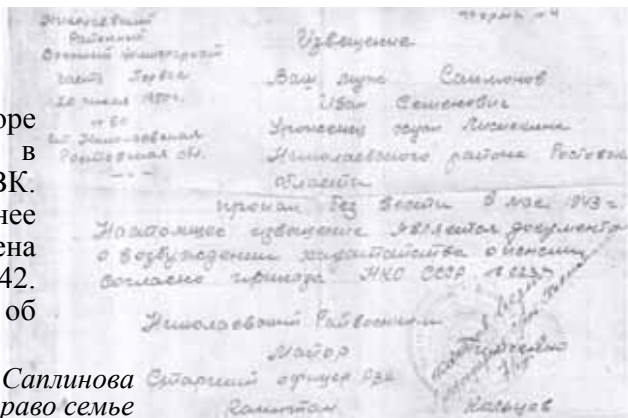 Николаевский
Районный
Военный
часть Первая
20 июня 1950 г.
№ 80
ст. Николаевская
Ростовская обл.
Форма № 4
Извещение
Ваш муж Саплинов
Иван Семенович
Уроженец
Николаевского района Ростовской
области
пропал без вести в мае 1943 г.
Настоящее извещение является документом
о возбуждении ходатайства о пенсии
согласно приказа НКО СССР №
Николаевский Райвоенком
Майор
Старший офицер
Капитан
оре
в
ВК.
нее
ена
42.
об
Саплинова
раво семье